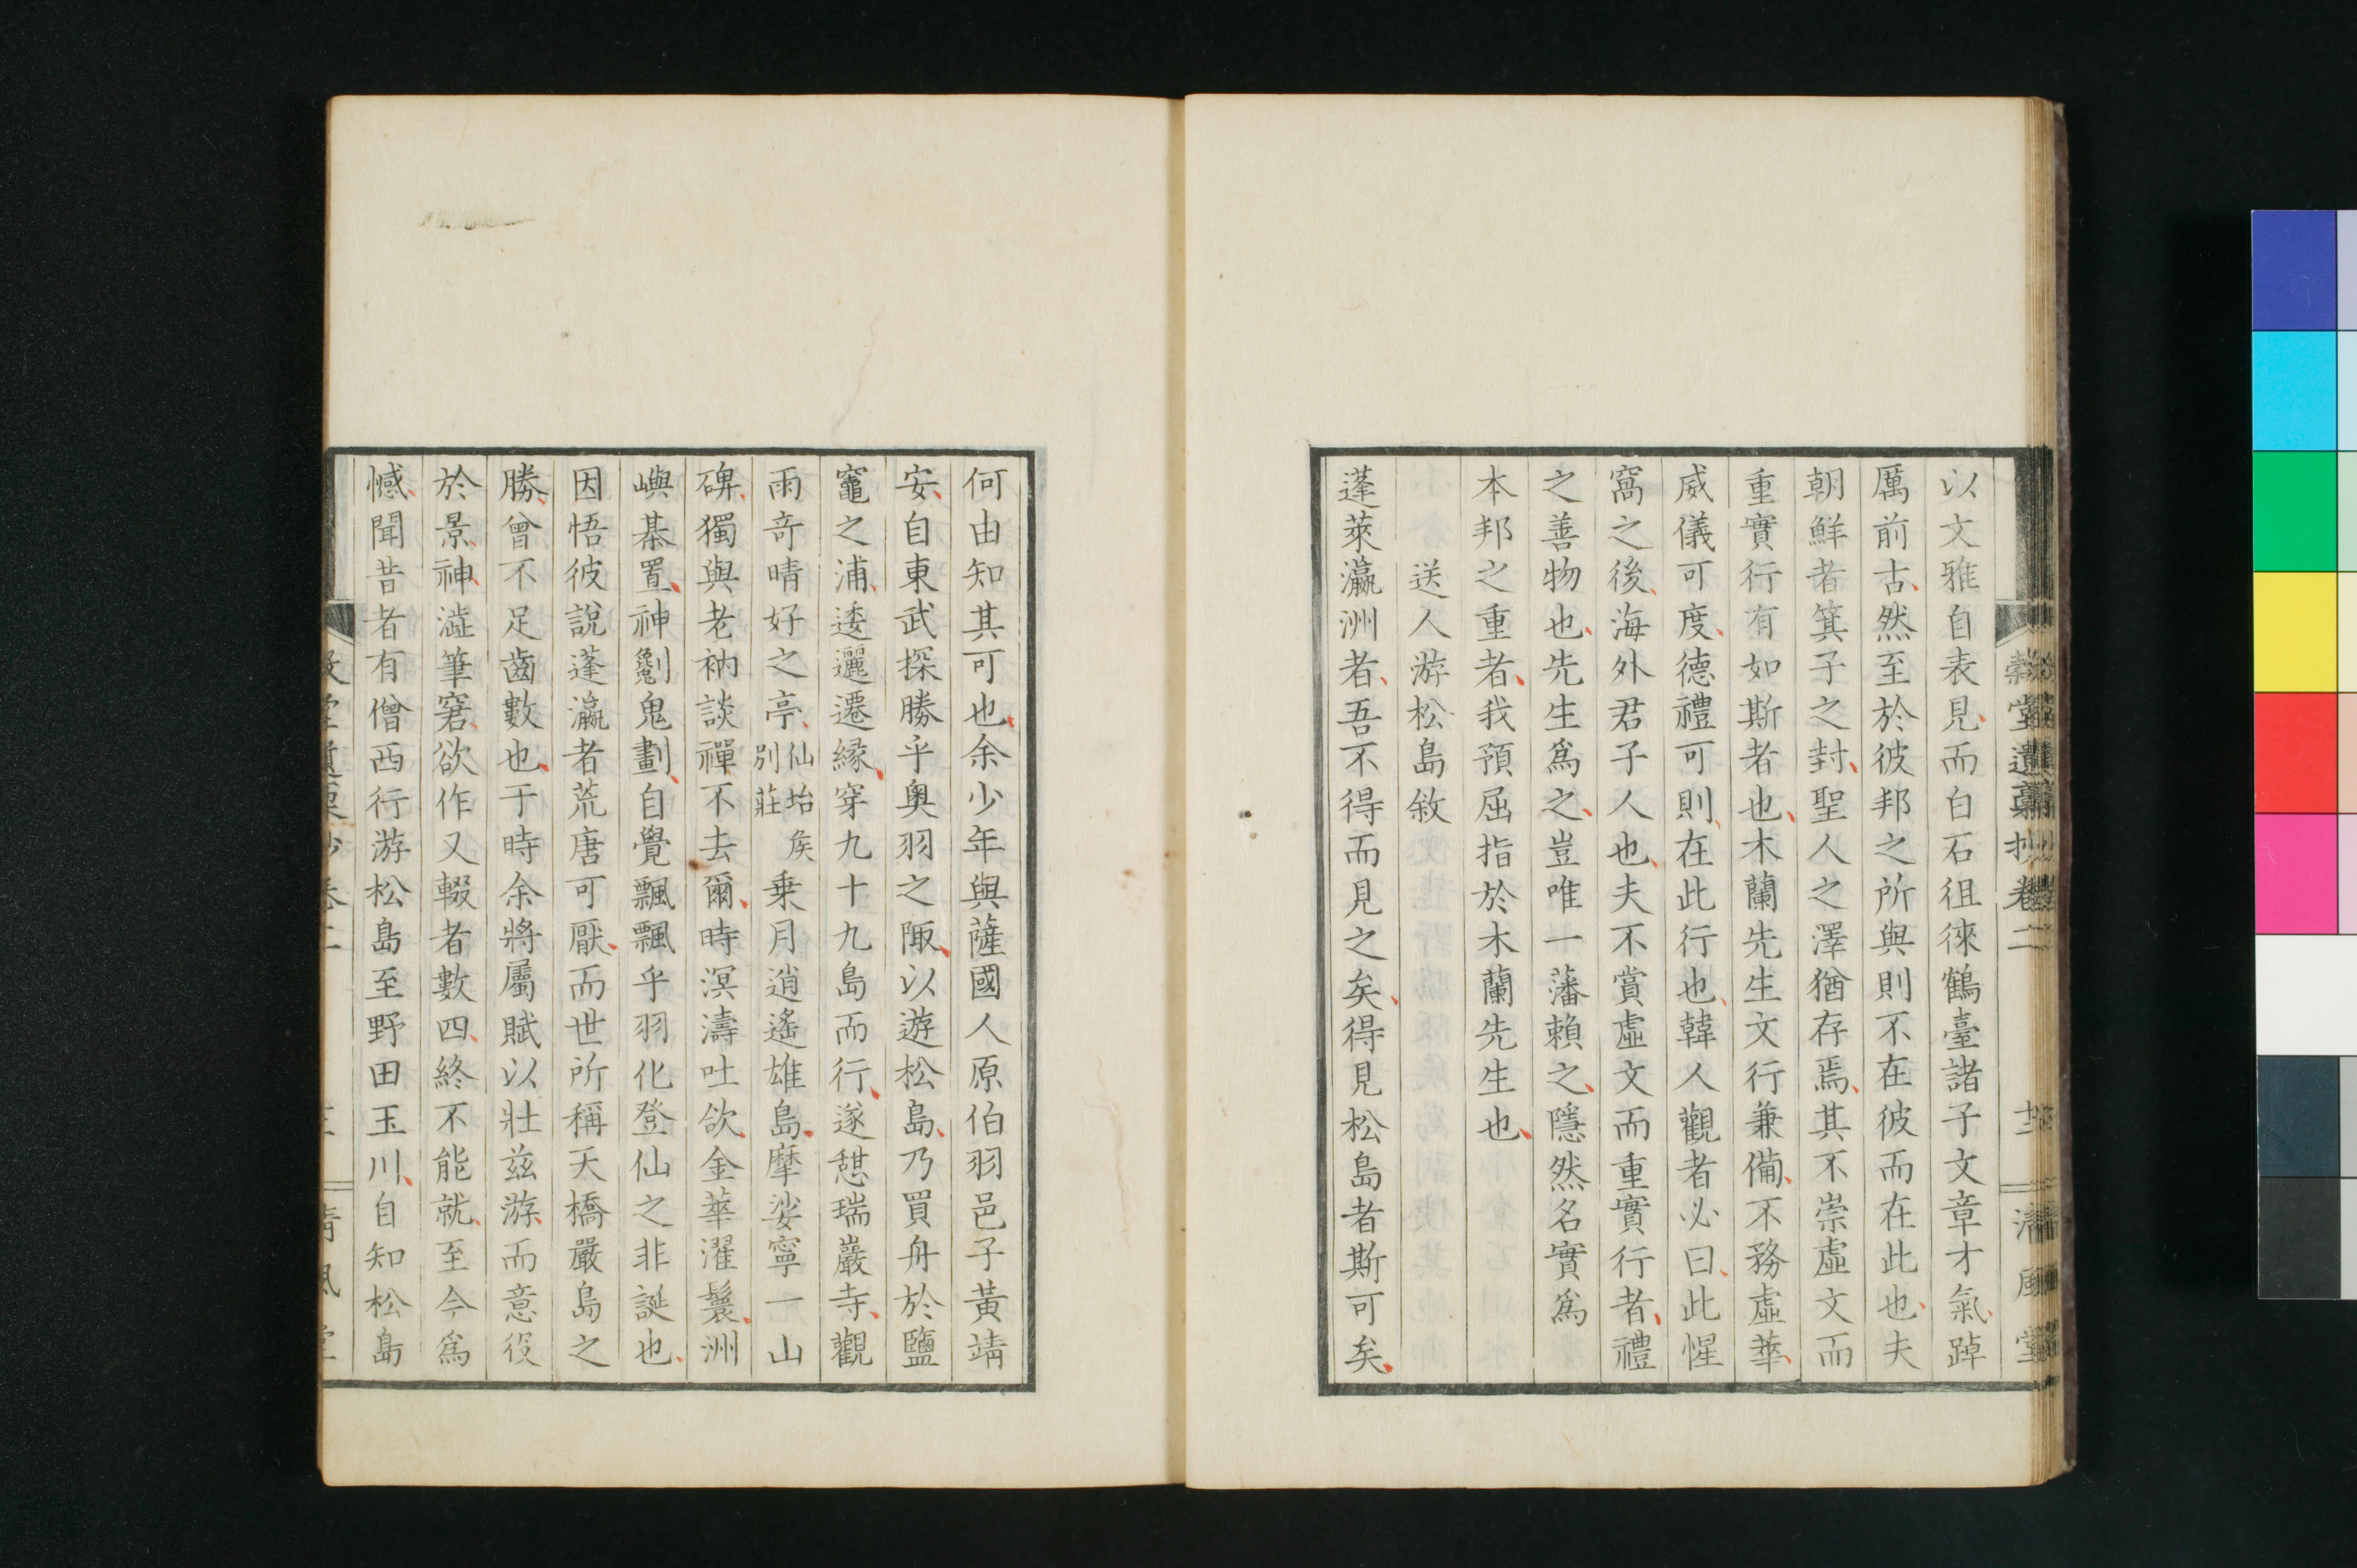 以文雅自表見而白石徂徠鶴臺諸子文章才氣踔
厲前古然至於彼邦之所與則不在彼而在此也夫
朝鮮者箕子之封聖人之澤猶存焉其不崇虛文而
重實行有如斯者也木蘭先生文行兼備不務虛華
威儀可度德禮可則在此行也韓人觀者必曰此惺
窩之後海外君子人也夫不賞虛文而重實行者禮
之善物也先生爲之豈唯一藩賴之隱然名實爲
本邦之重者我預屈指於木蘭先生也
送人游松島敘
蓬萊瀛洲者吾不得而見之矣得見松島者斯可矣
何由知其可也余少年與薩國人原伯羽邑子黃靖
安自東武探勝乎奧羽之陬以遊松島乃買舟於鹽
竈之浦逶邐遷緣穿九十九島而行遂憇瑞巖寺觀
雨奇晴好之亭仙坮矦別莊乗月逍遙雄島摩娑寧一山
碑獨與老衲談禪不去爾時溟濤吐欲金華濯鬟洲
嶼棊置神劖鬼劃自覺飄飄乎羽化登仙之非誕也
因悟彼說蓬瀛者荒唐可厭而世所稱天橋嚴島之
勝曾不足齒數也于時余將屬賦以壯茲游而意役
於景神澁筆窘欲作又輟者數四終不能就至今爲
憾聞昔者有僧西行游松島至野田玉川自知松島